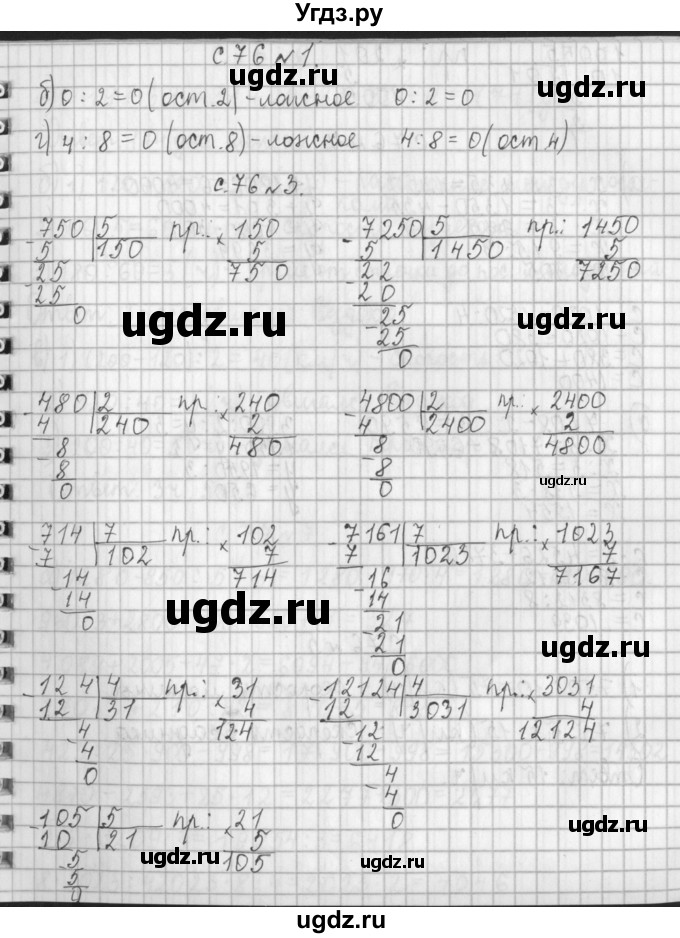 Угдз.ру
с.76 №1.
б) 0 : 2 = 0 (ост.2) - ложное 0 : 2 = 0
г) 4 : 8 = 0 (ост.8) - ложное 4 : 8 = 0 (ост.4)
с.76 №3.
-750|5 пр.: ×150 -7250|5 пр.: 1450
5 |150 5 5 |1450 5
-25 750 -22 7250
25 20
0 -25
25
0
ugdz.ru ugdz.ru
-480|2 пр.: ×240 -4800|2 пр.: ×2400
4 |240 2 4 |2400 2
-8 480 -8 4800
8 8
0 0
ugdz.ru
-714|7 пр.: ×102 -7161|7 пр.: ×1023
7 |102 7 7 |1023 7
-14 714 -16 7167
14 14
0 -21
21
0
ugdz.ru ugdz.ru
-124|4 пр.: ×31 -12124|4 пр.: ×3031
12 |31 4 12 |3031 4
-4 124 -12 12124
4 12
0 -4
4
0
-105|5 пр.: ×21
10 |21 5
-5 105
5
0
ugdz.ru ugdz.ru ugdz.ru
ugdz.ru